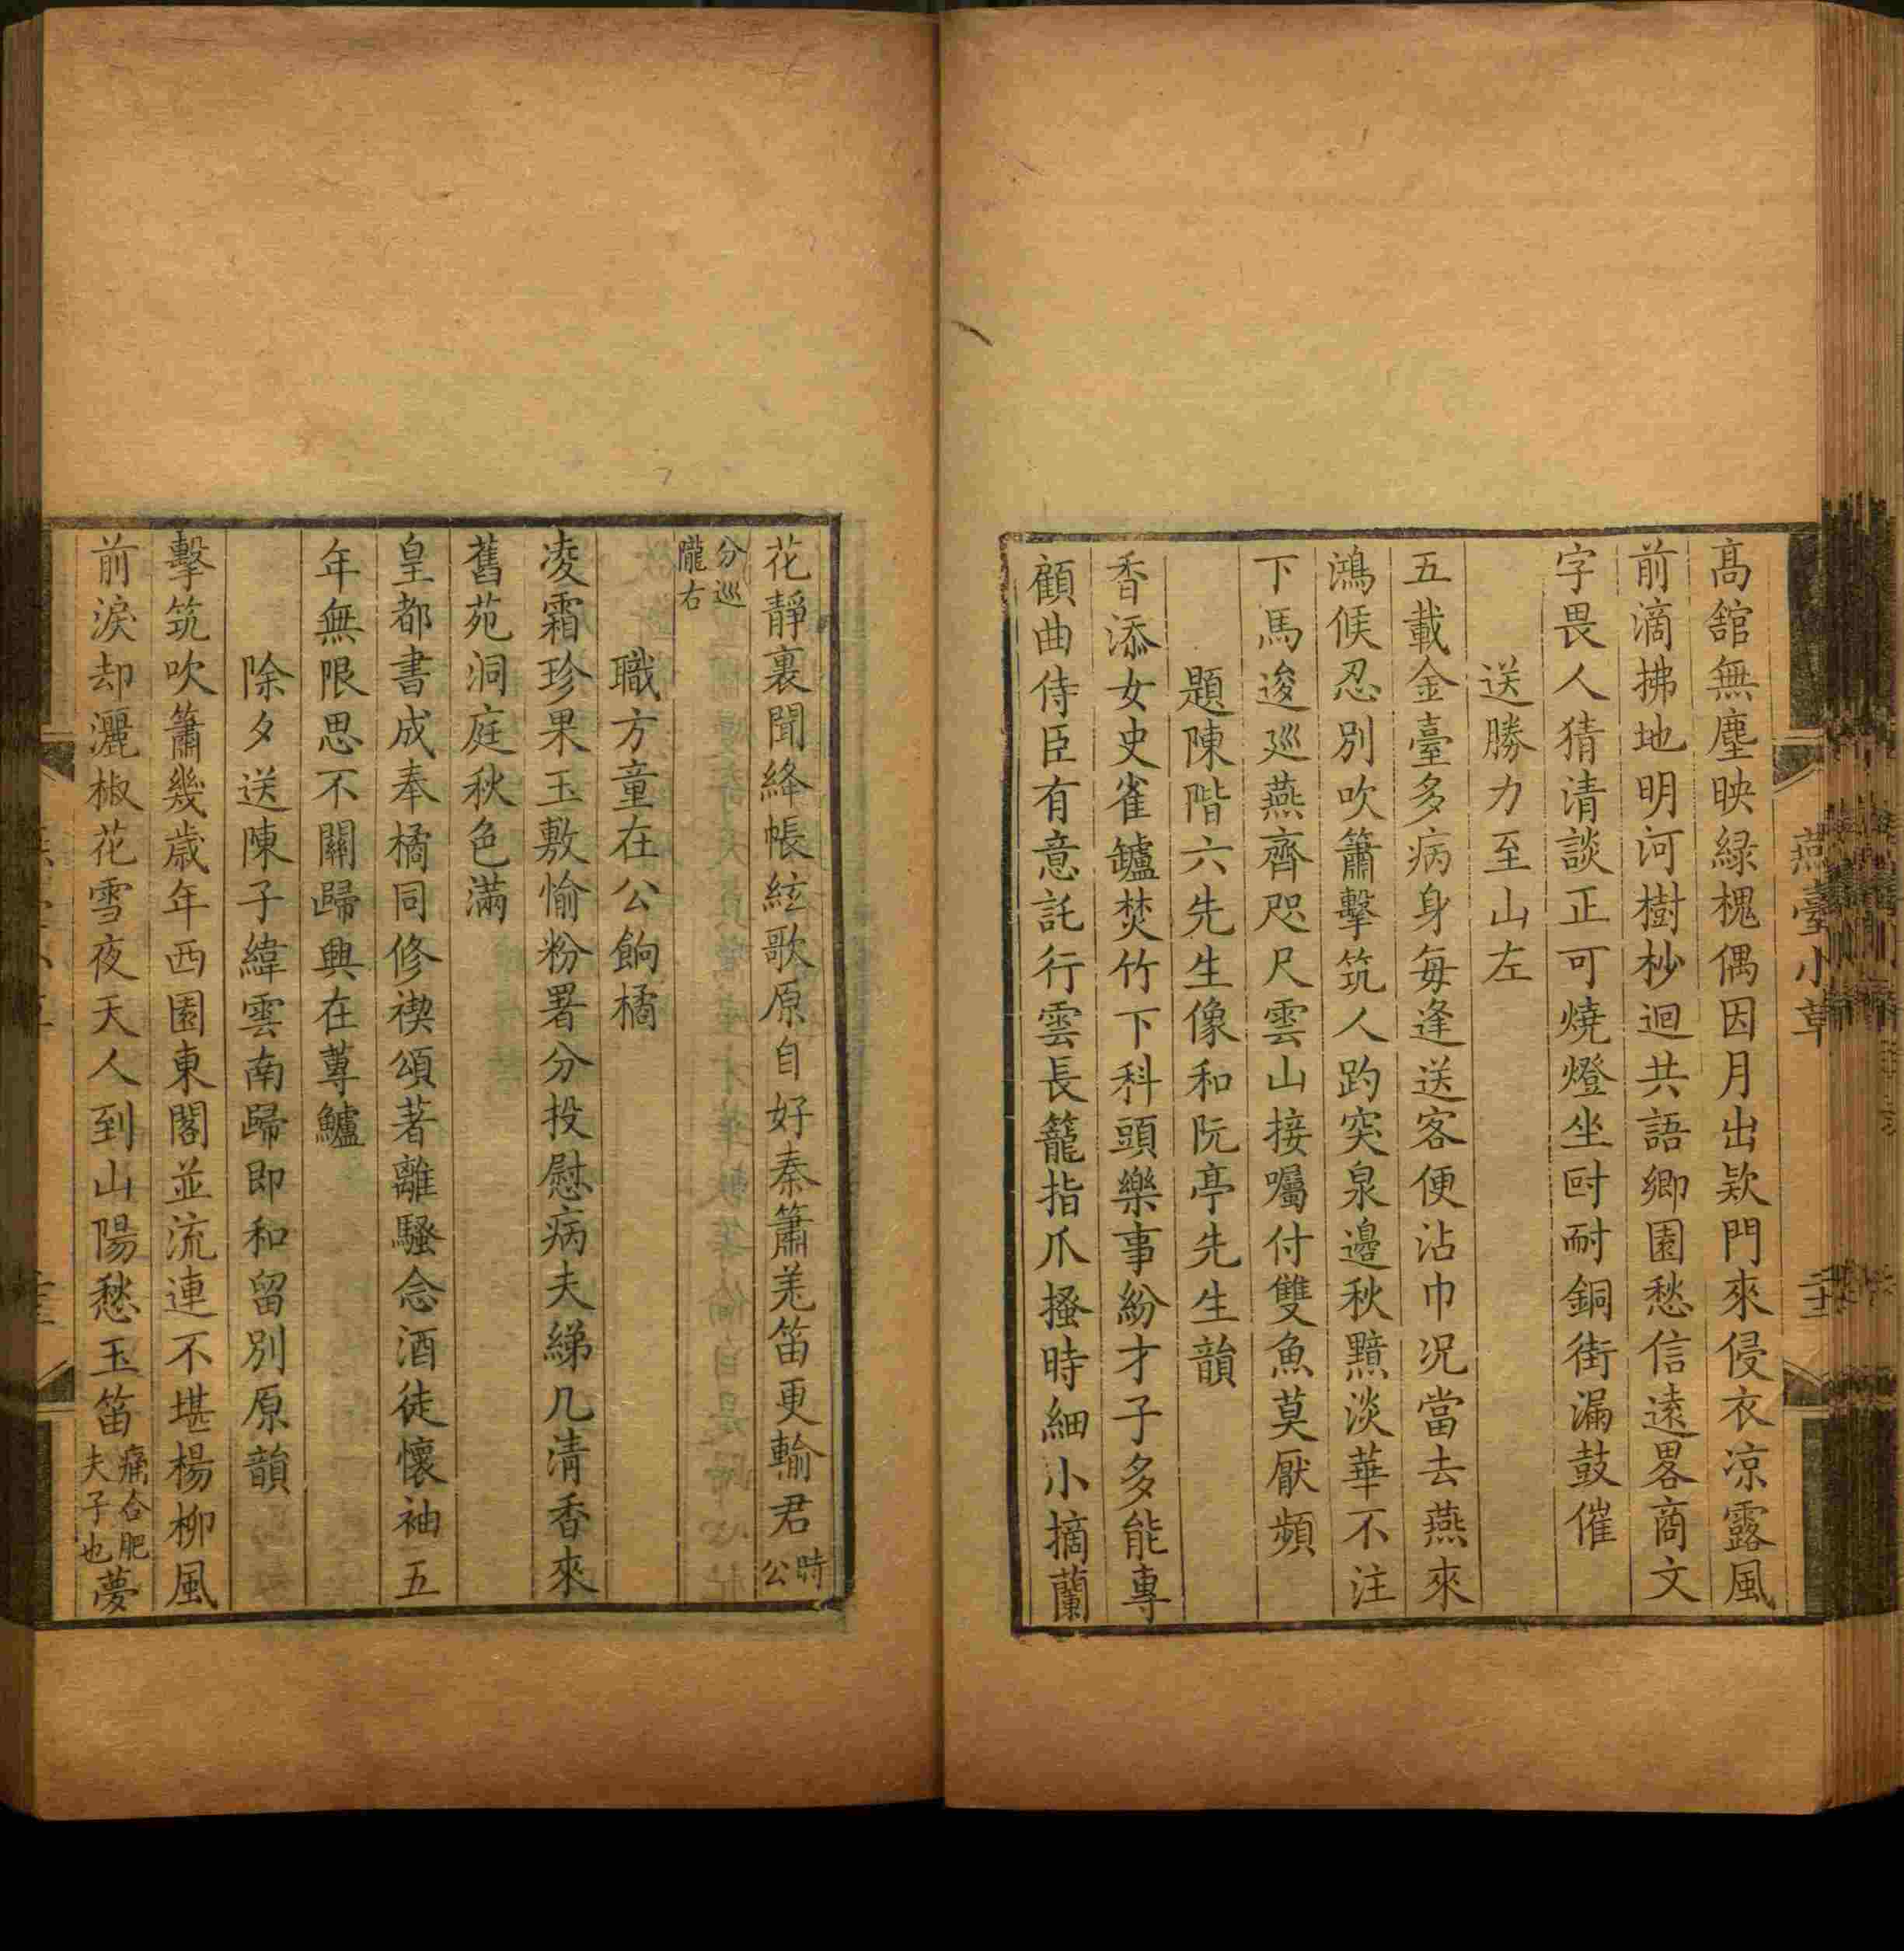 燕臺小草
高舘無塵映緑槐偶因月出欵門來侵衣凉露風
前滴拂地明河樹杪迴共語鄉園愁信遠畧商文
字畏人猜清談正可燒燈坐尀耐銅街漏鼓催
送勝力至山左
五載金臺多病身每逢送客便沾巾况當去燕來
鴻候忍別吹簫擊筑人趵突泉邊秋黯淡華不注
下馬逡巡燕齊咫尺雲山接囑付雙魚莫厭頻
題陳階六先生像和阮亭先生韻
香添女史雀鑪焚竹下科頭樂事紛才子多能專
顧曲侍臣有意託行雲長籠指爪搔時細小摘蘭
花靜裏聞絳帳絃歌原自好秦簫羌笛更輸君時公
分巡隴右
職方童在公餉橘
凌霜珍果玉敷愉粉署分投慰病夫綈几清香來
舊苑洞庭秋色滿
皇都書成奉橘同修禊頌著離騷念酒徒懷袖五
年無限思不關歸興在蓴鱸
除夕送陳子緯雲南歸即和留別原韻
擊筑吹簫幾歲年西園東閣並流連不堪楊柳風
前淚却灑椒花雪夜天人到山陽愁玉笛痛合肥夫子也夢